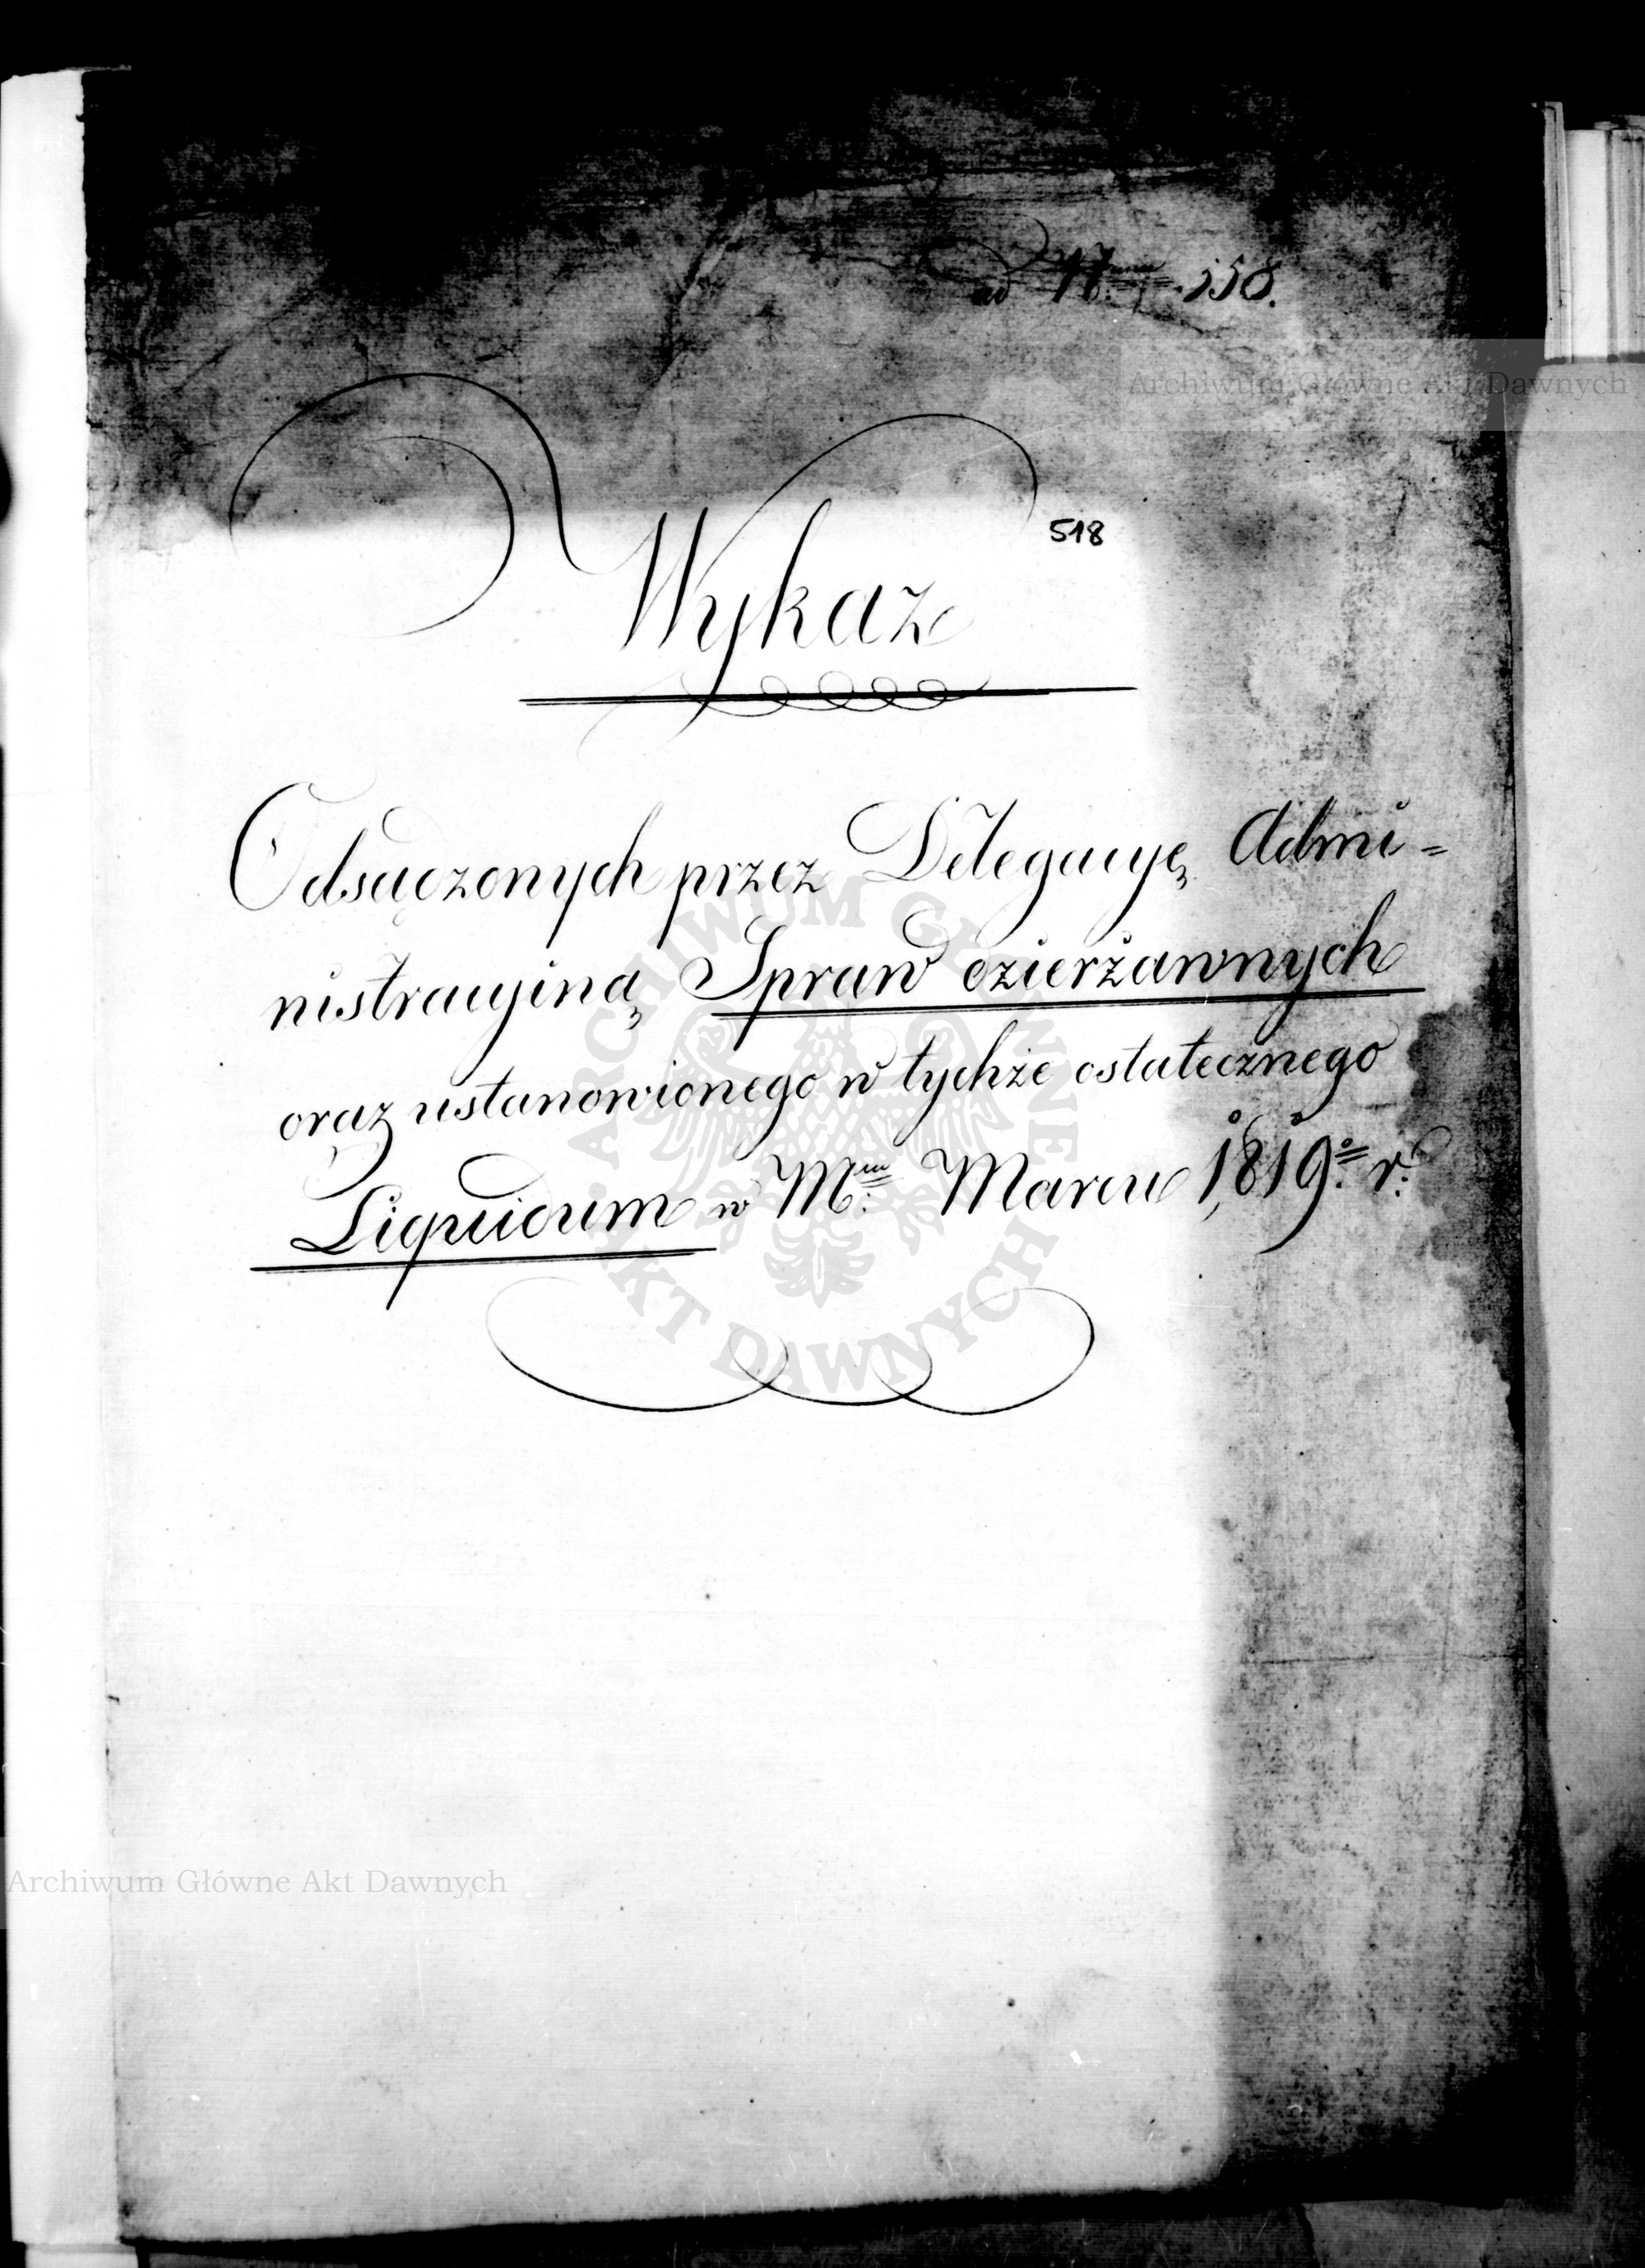 ad N 558.
Archiwum Główne Akt Dawnych
518
Wykaz
Odsądzonych przez Delegacyę Admi=
nistracyiną Spraw dzierżawnych
oraz ustanowionego w tychże ostatecznego
Liquidum w M: Marcu 1819: r:
ARCHIWUM GŁÓWNE AKT DAWNYCH
Archiwum Główne Akt Dawnych